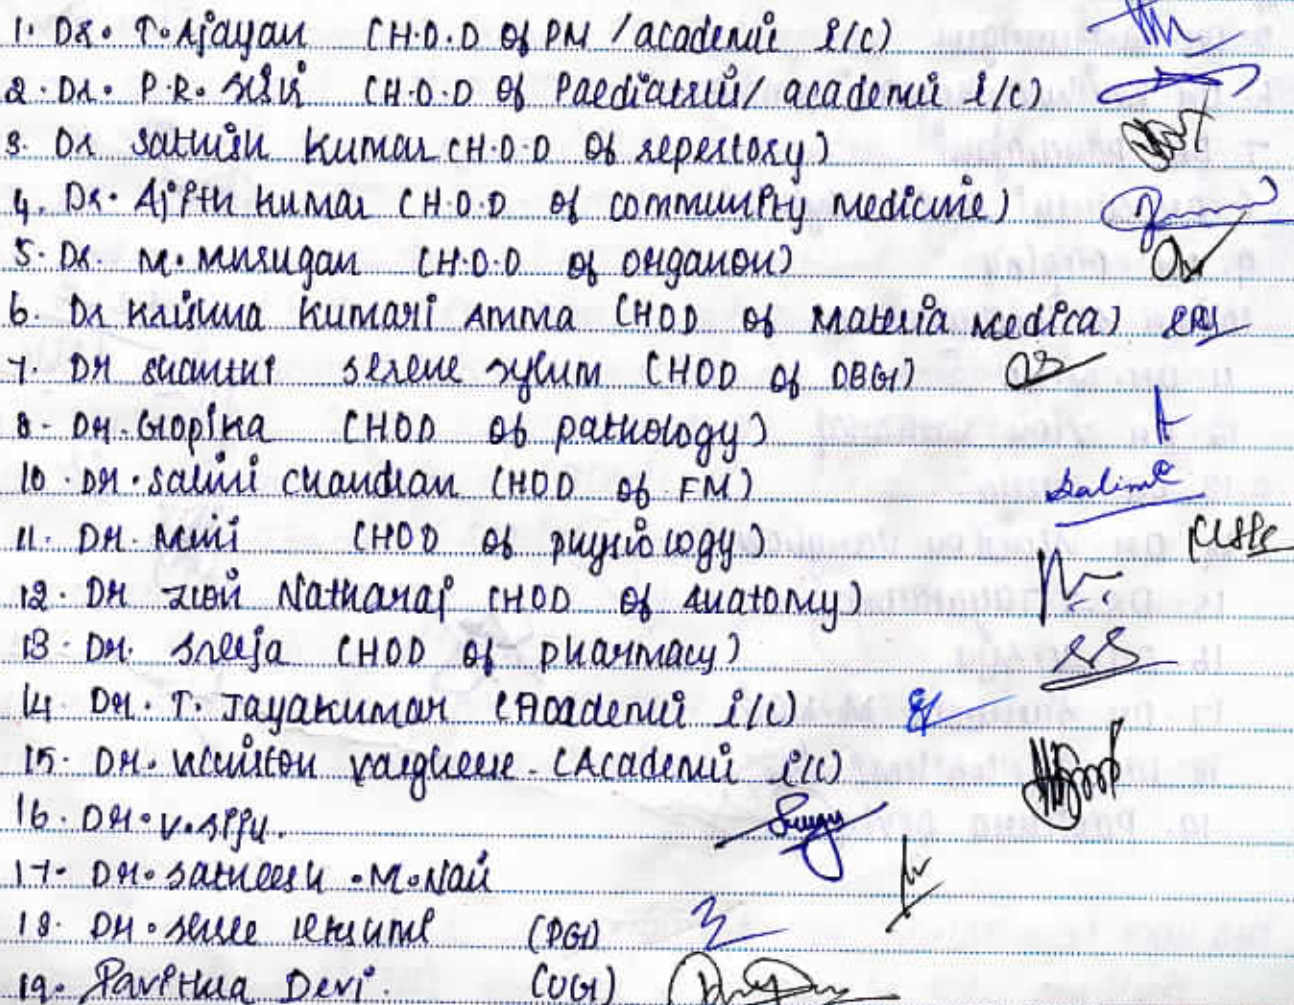 1. Dr. T. Ajayan (H.O.D of PM / academic i/c)
2. Dr. P.R. Sisir (H.O.D of Paediatrics / academic i/c)
3. Dr Sathish Kumar (H.O.D of repertory)
4. Dr. Ajith Kumar (H.O.D of community medicine)
5. Dr M. Murugan (H.O.D of Organon)
6. Dr Krishna Kumari Amma (HOD of Materia Medica)
7. Dr Shanthi Serene Sylum (HOD of OBG)
8. Dr. Gopika (HOD of pathology)
10. Dr. Salini Chandran (HOD of FM) Salini
11. Dr. Mini (HOD of physiology)
12. Dr Natharaj (HOD of Anatomy)
13. Dr. Sreeja (HOD of pharmacy)
14. Dr. T. Jayakumar (Academic i/c)
15. Dr. Winston Varghese. (Academic i/c)
16. Dr. V. Siju.
17. Dr. Satheesh . M. Nair
18. Dr. (PG)
19. Pavithra Devi. (UG)